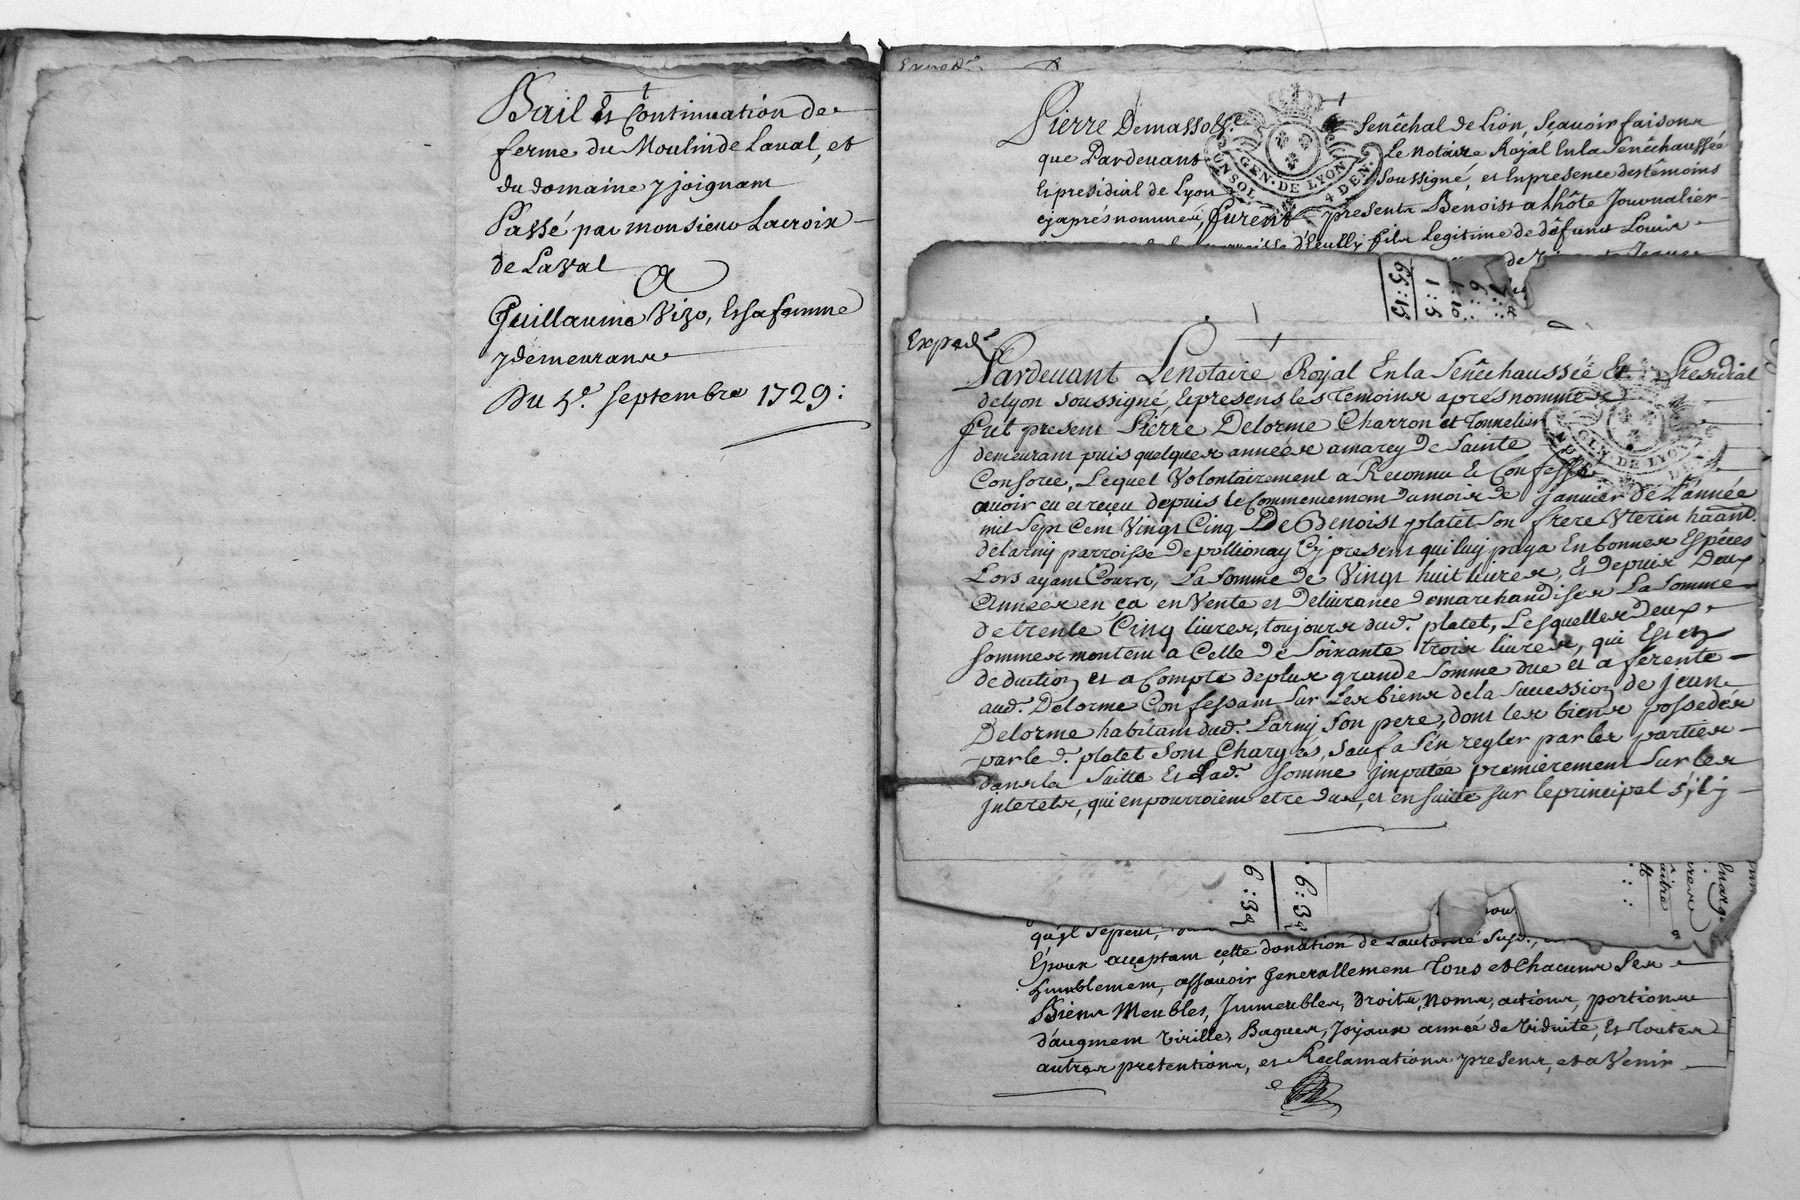 Bail Et Continuation de
ferme du Moulin de Laval, et
du domaine y joignant
Passé par monsieur Lacroix
de Laval
A
Guillaume Vizo, Et sa femme
y demeurans
Du 5e. septembre 1729:
Pierre Demassoz Senêchal de Lion, Sçavoir faisons
que Pardevant Le notaire Royal En la Senêchaussée
Et presidial de Lyon soussigné, et En presence des témoins
cy aprés nommés, furent presents Benoist alhôte Journalier
d'Ecully fils Legitime de défunt Louis
GEN. DE LYON
4 DEN.
65:15
1:5
1:10
Exped.
Pardevant Le notaire Royal En la Senêchaussée Et Presidial
de lyon soussigné, Et presens les Temoins aprés nommés
fut present Pierre Delorme Charron et Tonnelier
demeurant puis quelques années a marcy de Sainte
Consorce, Lequel Volontairement a Reconnu & Confessé
avoir eu et receu depuis le Commencement du mois de Janvier de L'année
mil Sept Cent Vingt Cinq De Benoist platet Son frere Uterin haânt.
de larny parroisse de pollionay Cy present qui luy paya En bonnes Espéces
Lors ayant Cours, La Somme de Vingt huit livres, Et depuis Deux
Années en ça en Vente et Delivrance de marchandises La Somme
de trente Cinq livres, toujours dud. platet, Lesquelles deux
sommes montent a Celle de Soixante trois livres, qui Est en
deduction et a Compte de plus grande Somme due et aferente
aud. Delorme Confessant Sur Les biens de la Succession de Jean
Delorme habitant dud. Larny Son pere, dont les biens possedés
par le d. platet Sont Chargés, Sauf a S'en regler par les parties
dans la Suitte Et Lad. Somme Imputée premierement Sur les
Interets, qui en pourroient etre dus, et en suitte sur le principal S'il y
6:39
6:39
qu'il se peut,
Epoux acceptant cette donation de L'autorité Susd.,
humblement, assavoir generallement Tous et Chacuns Ses
Biens Meubles, Immeubles, Droits, Noms, actions, portions
d'augment virille, Bagues, Joyaux année de Viduité, Et Toutes
autres pretentions, et Reclamations presens, et a Venir